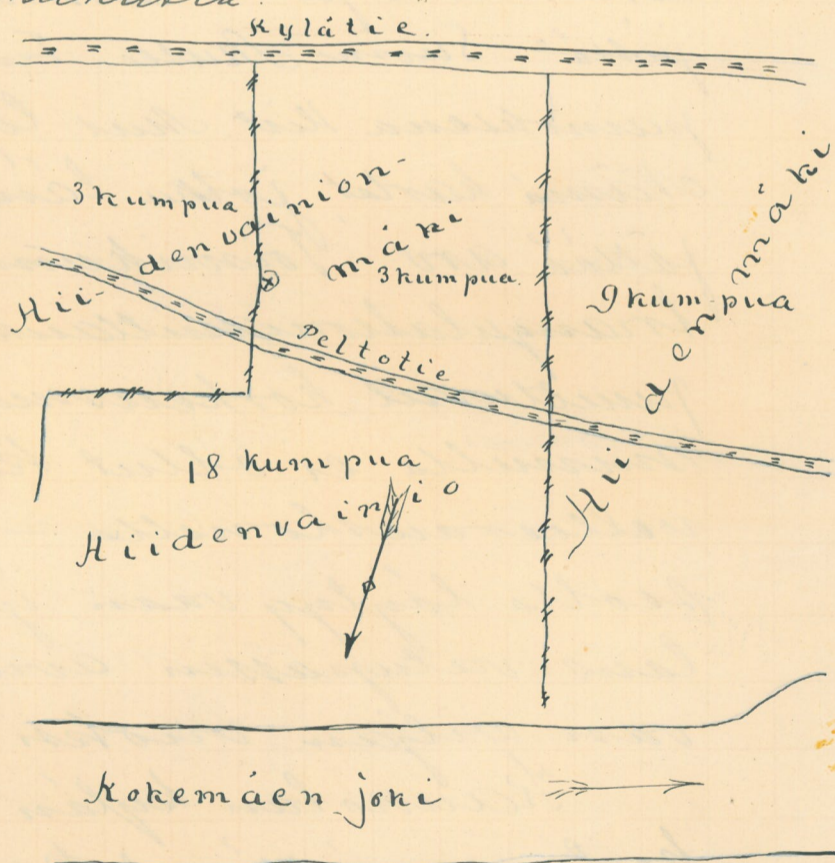 Kylätie.
3 kumpua
Hii- denvainion-
mäki
3 kumpua.
9 kumpua
Hiidenmäki
Peltotie
18 kumpua
Hiidenvainio
Kokemäen joki